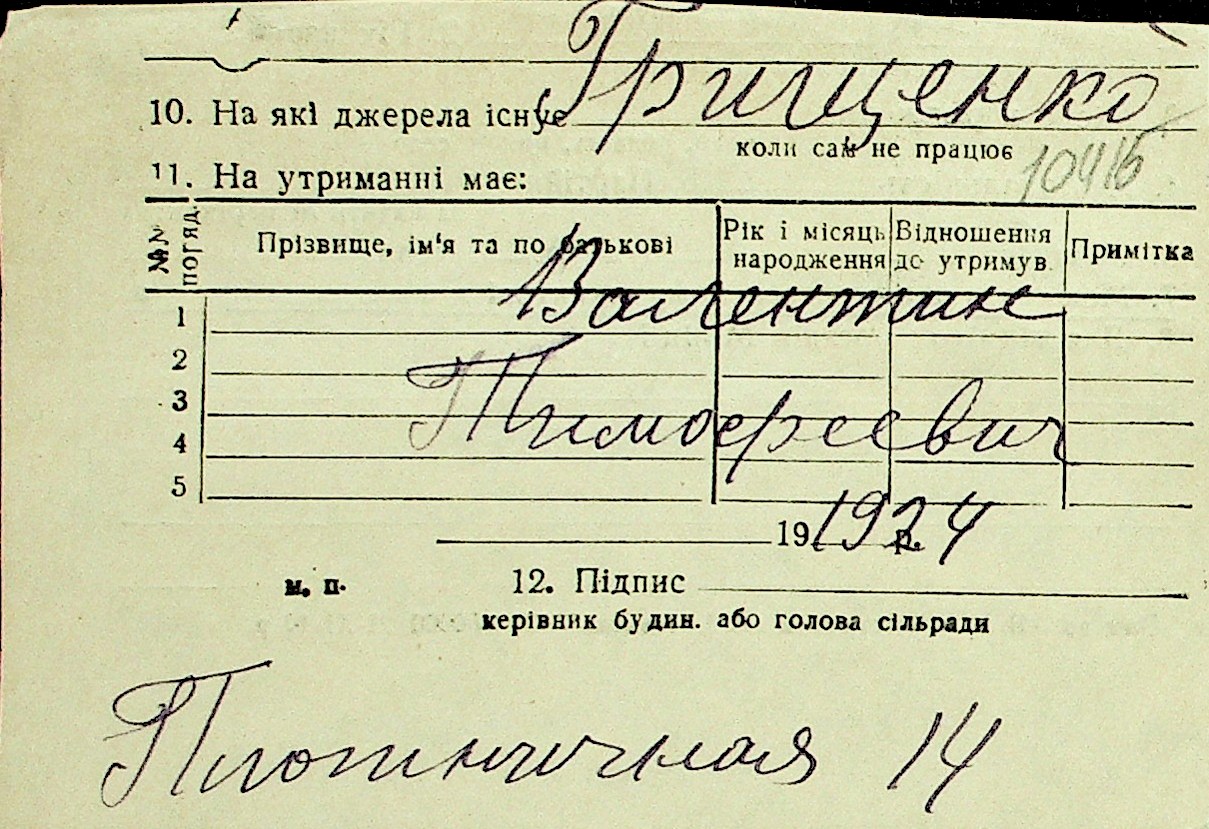 Грищенко
10. На які джерела існує
коли сам не працює
10415
11. На утриманні має:
№№ поряд.
Прізвище, ім'я та по батькові
Рік і місяць народження
Відношення до утримув.
Примітка
Валентин
1
2
Тимофеевич
3
4
5
19 р.
1924
м. п.
12. Підпис
керівник будин. або голова сільради
Плотничная 14